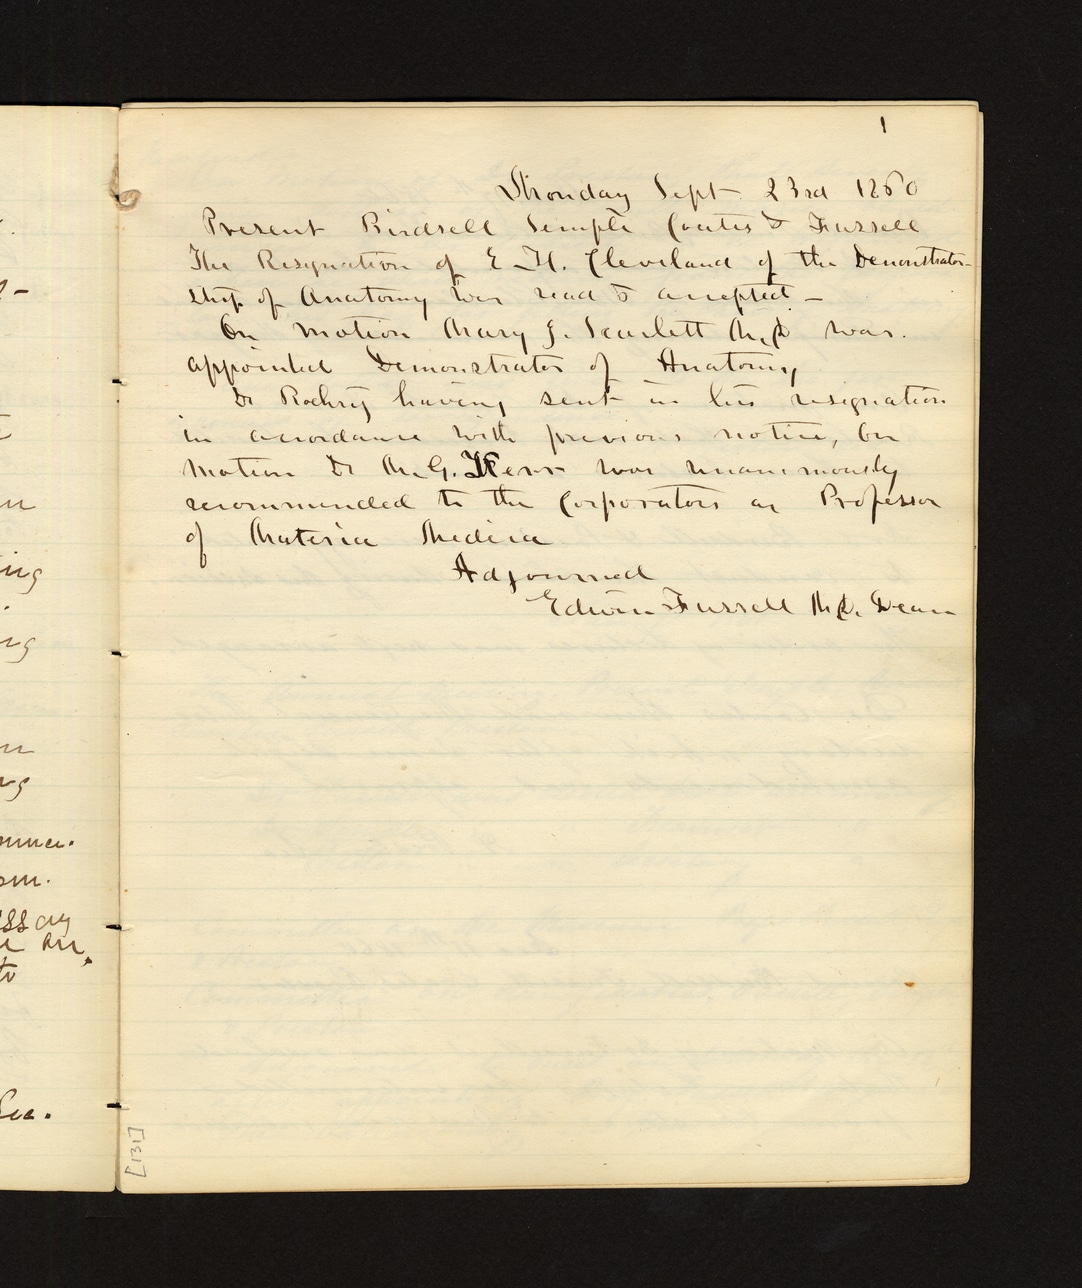 1
Monday Sept 23rd 1860
Present Birdsell Semple Coates & Fussell
The Resignation of E. H. Cleveland of the Demonstrator-
ship of Anatomy was read & accepted –
On motion Mary J. Scarlett M.D was.
appointed Demonstrator of Anatomy
Dr Rodney having sent in his resignation
in accordance with previous notice, On
motion Dr M. G. Kerr was unanimously
recommended to the Corporators as Professor
of Materia Medica
Adjourned
Edwin Fussell M.D. Dean
[131]